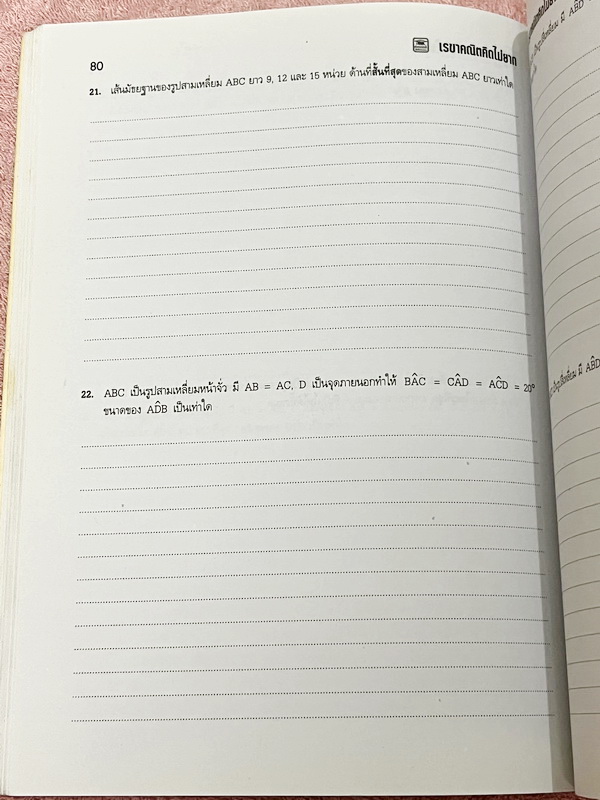 80
เรขาคณิตคิดไม่ยาก
21. เส้นมัธยฐานของรูปสามเหลี่ยม ABC ยาว 9, 12 และ 15 หน่วย ด้านที่สั้นที่สุดของสามเหลี่ยม ABC ยาวเท่าใด
22. ABC เป็นรูปสามเหลี่ยมหน้าจั่ว มี AB = AC, D เป็นจุดภายนอกทำให้ BÂC = CÂD = AĈD = 20°
ขนาดของ AD̂B เป็นเท่าใด
มี AB̂D
มี AB̂D